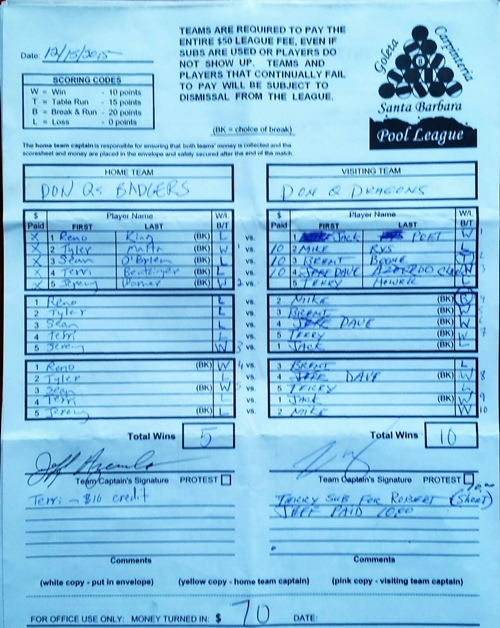 Date: 12/15/2015
TEAMS ARE REQUIRED TO PAY THE
ENTIRE $50 LEAGUE FEE, EVEN IF
SUBS ARE USED OR PLAYERS DO
NOT SHOW UP. TEAMS AND
PLAYERS THAT CONTINUALLY FAIL
TO PAY WILL BE SUBJECT TO
DISMISSAL FROM THE LEAGUE.
Goleta Carpinteria
Santa Barbara
Pool League
SCORING CODES
W = Win - 10 points
T = Table Run - 15 points
B = Break & Run - 20 points
L = Loss - 0 points
(BK = choice of break)
The home team captain is responsible for ensuring that both teams' money is collected and the
scoresheet and money are placed in the envelope and safely secured after the end of the match.
HOME TEAM
DON Qs BADGERS
VISITING TEAM
DON Q DRAGONS
$ Paid Player Name FIRST LAST W/L B/T
X 1 Reno King (BK) L vs.
X 2 Tyler (BK) W 1 vs.
X 3 Sean O'Brien (BK) L vs.
X 4 Terri (BK) L vs.
X 5 Jeremy (BK) W 2 vs.
$ Paid Player Name FIRST LAST W/L B/T
1 JACK POET W 1
10 2 MIKE RYS L
10 3 BRENT BOONE
10 4 DAVE
5 TERRY HOWELL L
1 Reno L vs.
2 Tyler L vs.
3 Sean L vs.
4 Terri L vs.
5 Jeremy W 3 vs.
2 MIKE (BK)
3 BRENT (BK)
4 DAVE (BK)
5 TERRY (BK)
1 JACK (BK) L
1 Reno (BK) W 4 vs.
2 Tyler (BK)
3 Sean (BK) W
4 Terri (BK) L
5 Jeremy (BK) L vs.
3 BRENT L
4 DAVE W 8
5 TERRY L
1 JACK (BK) W 9
2 MIKE (BK) W 10
Total Wins 5
Total Wins 10
Team Captain's Signature PROTEST
Team Captain's Signature PROTEST
Terri - $10 credit
TERRY SUB FOR ROBERT (SHORT)
JEFF PAID 10.00
Comments
Comments
(white copy - put in envelope) (yellow copy - home team captain) (pink copy - visiting team captain)
FOR OFFICE USE ONLY: MONEY TURNED IN: $ 70 DATE: